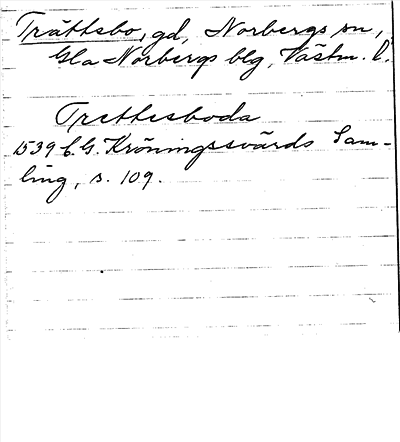 Trättsbo, gd, Norbergs sn,
Gla Norbergs blg, Västm. l.
Trettesboda
1539 C.G. Kröningssvärds Sam-
ling, s. 109.